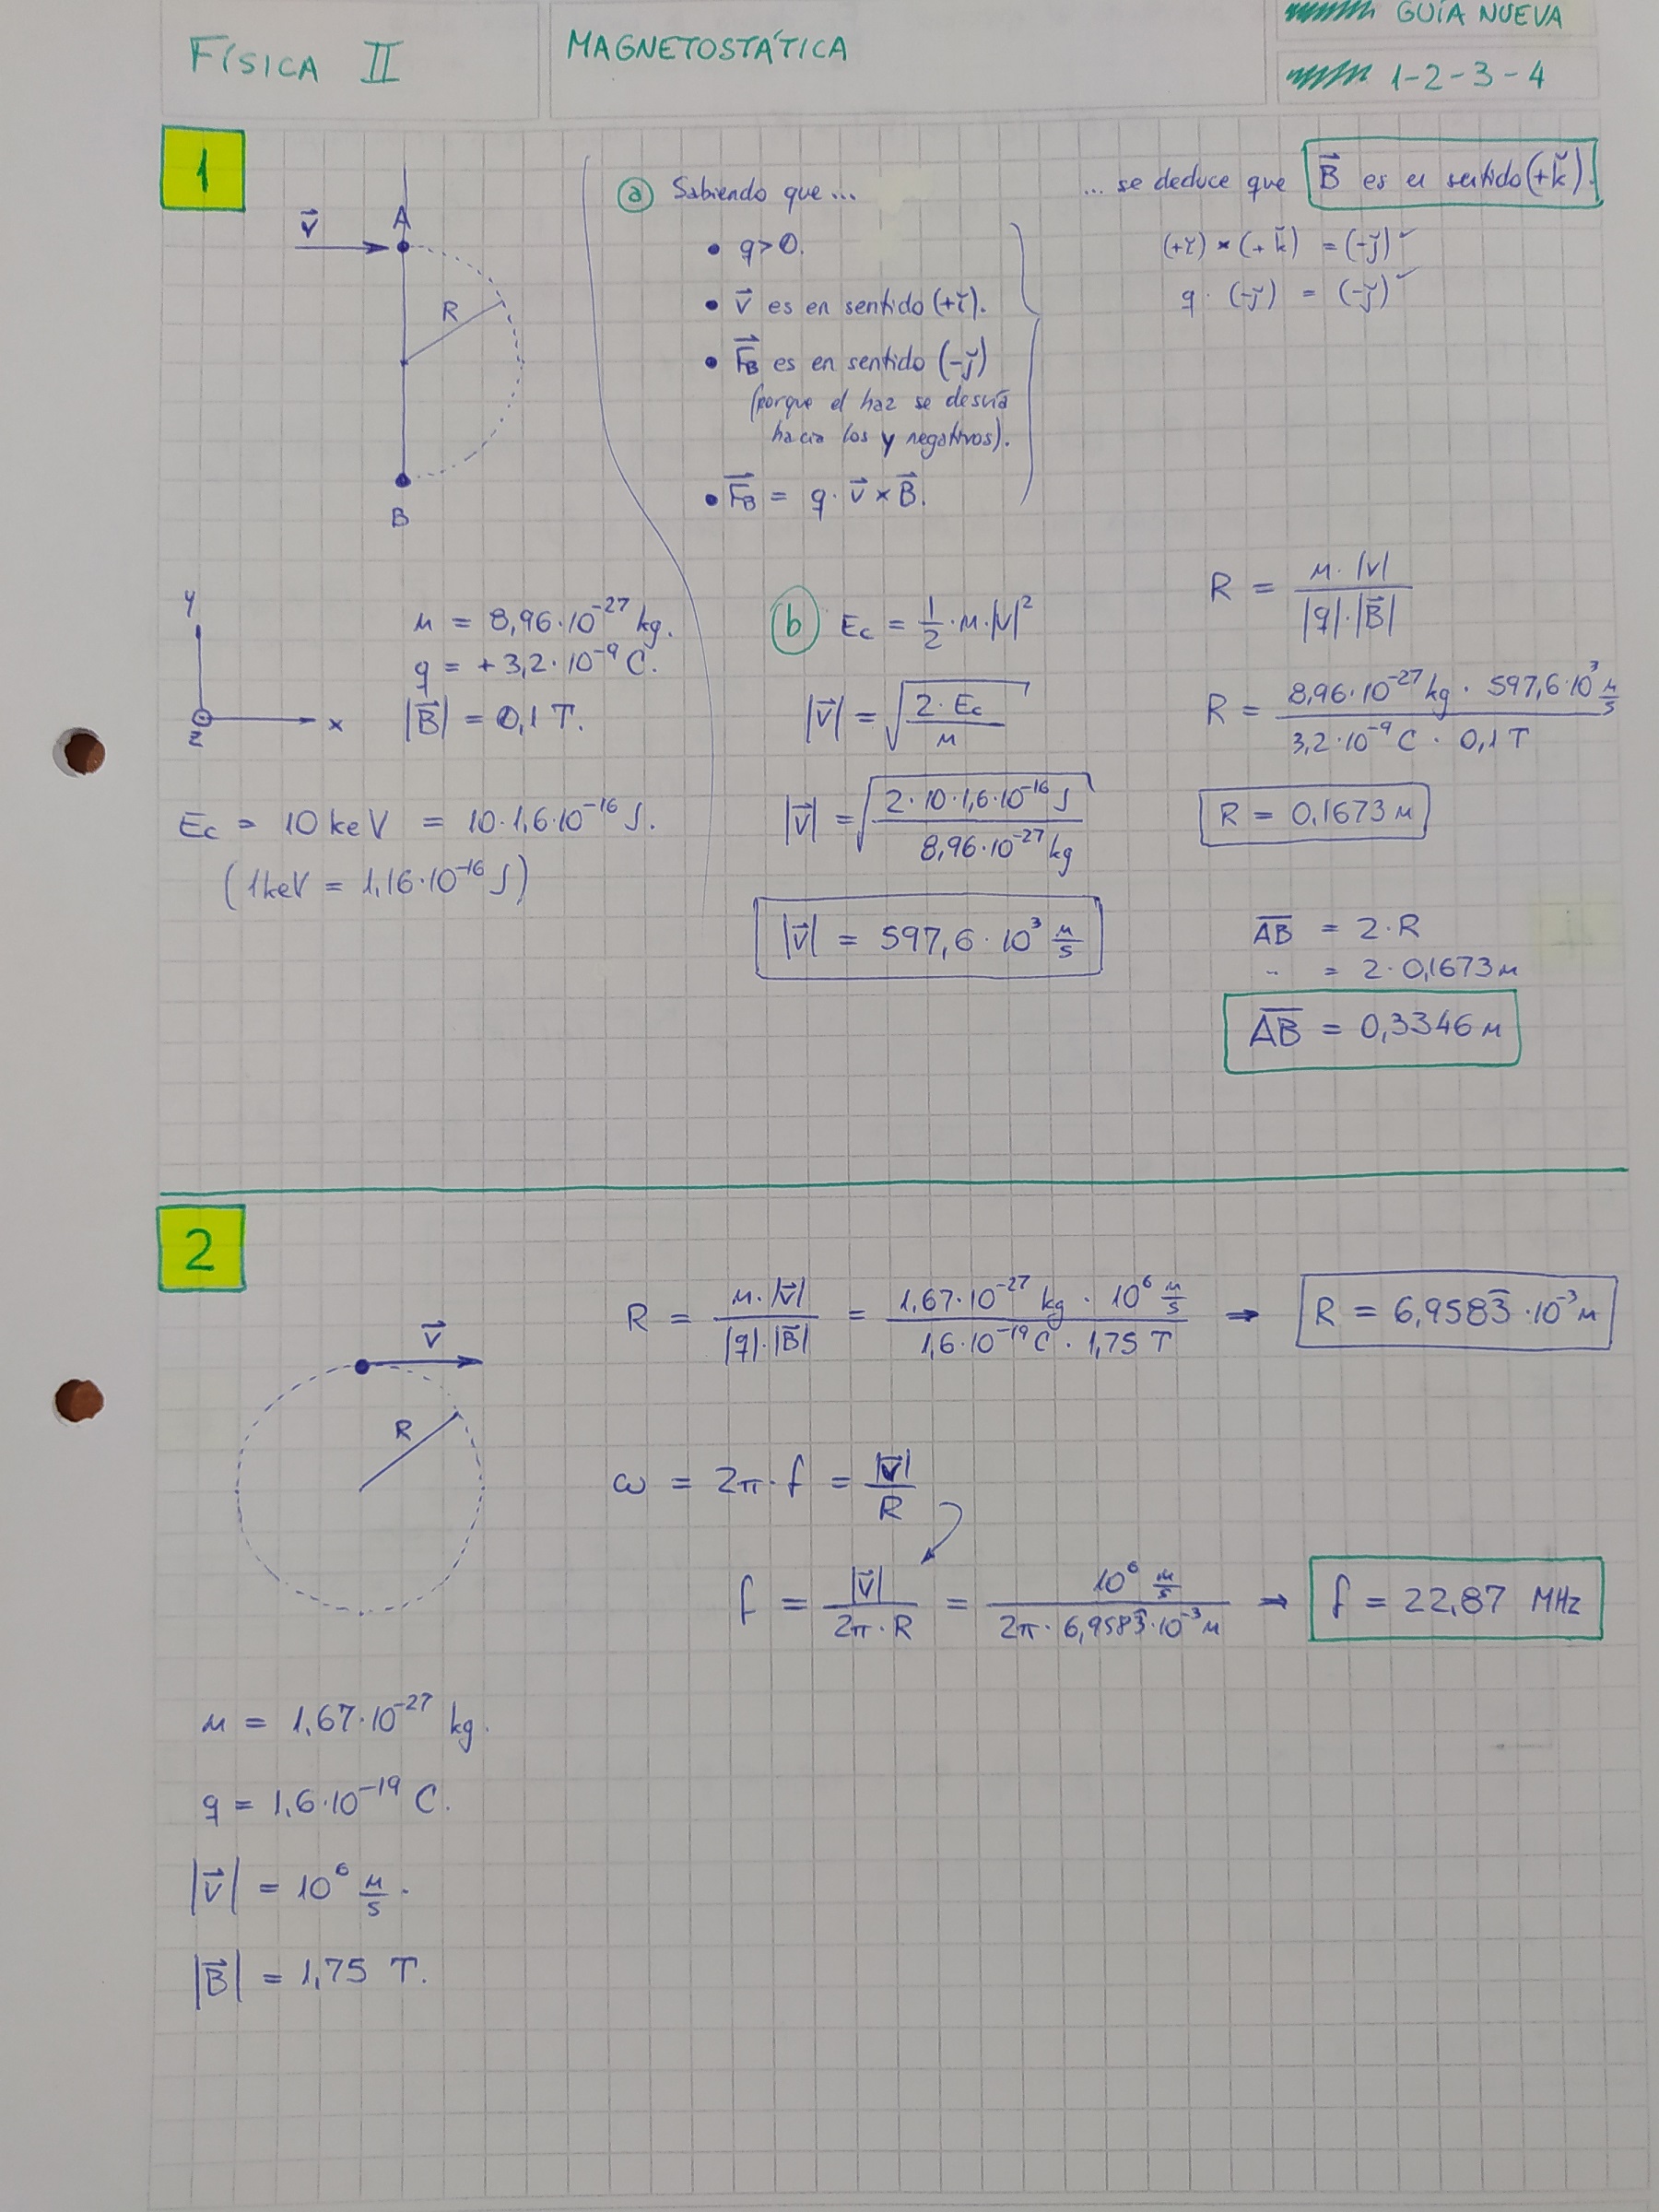 FÍSICA II
MAGNETOSTÁTICA
GUÍA NUEVA
1-2-3-4
1
A
v⃗
R
B
y
z
x
m = 8,96·10⁻²⁷ kg.
q = +3,2·10⁻⁹ C.
|B⃗| = 0,1 T.
Ec = 10 keV = 10·1,6·10⁻¹⁶ J.
(1keV = 1,16·10⁻¹⁶ J)
ⓐ Sabiendo que...
• q>0.
• v⃗ es en sentido (+ǐ).
• F⃗B es en sentido (-ǰ)
(porque el haz se desvía
hacia los y negativos).
• F⃗B = q · v⃗ × B⃗.
... se deduce que B⃗ es en sentido (+ǩ).
(+ǐ) × (+ǩ) = (-ǰ) ✓
q · (-ǰ) = (-ǰ) ✓
ⓑ Ec = 1/2 · m · |v|²
|v⃗| = √(2·Ec / m)
|v⃗| = √(2·10·1,6·10⁻¹⁶ J / 8,96·10⁻²⁷ kg)
|v⃗| = 597,6 · 10³ m/s
R = m·|v| / |q|·|B⃗|
R = 8,96·10⁻²⁷ kg · 597,6·10³ m/s / 3,2·10⁻⁹ C · 0,1 T
R = 0,1673 m
AB̅ = 2·R
" = 2·0,1673 m
AB̅ = 0,3346 m
2
v⃗
R
m = 1,67·10⁻²⁷ kg.
q = 1,6·10⁻¹⁹ C.
|v⃗| = 10⁶ m/s.
|B⃗| = 1,75 T.
R = m·|v⃗| / |q|·|B⃗| = 1,67·10⁻²⁷ kg · 10⁶ m/s / 1,6·10⁻¹⁹ C · 1,75 T → R = 6,9583̅ · 10⁻³ m
ω = 2π·f = |v⃗| / R
f = |v⃗| / 2π·R = 10⁶ m/s / 2π·6,9583̅·10⁻³ m → f = 22,87 MHz